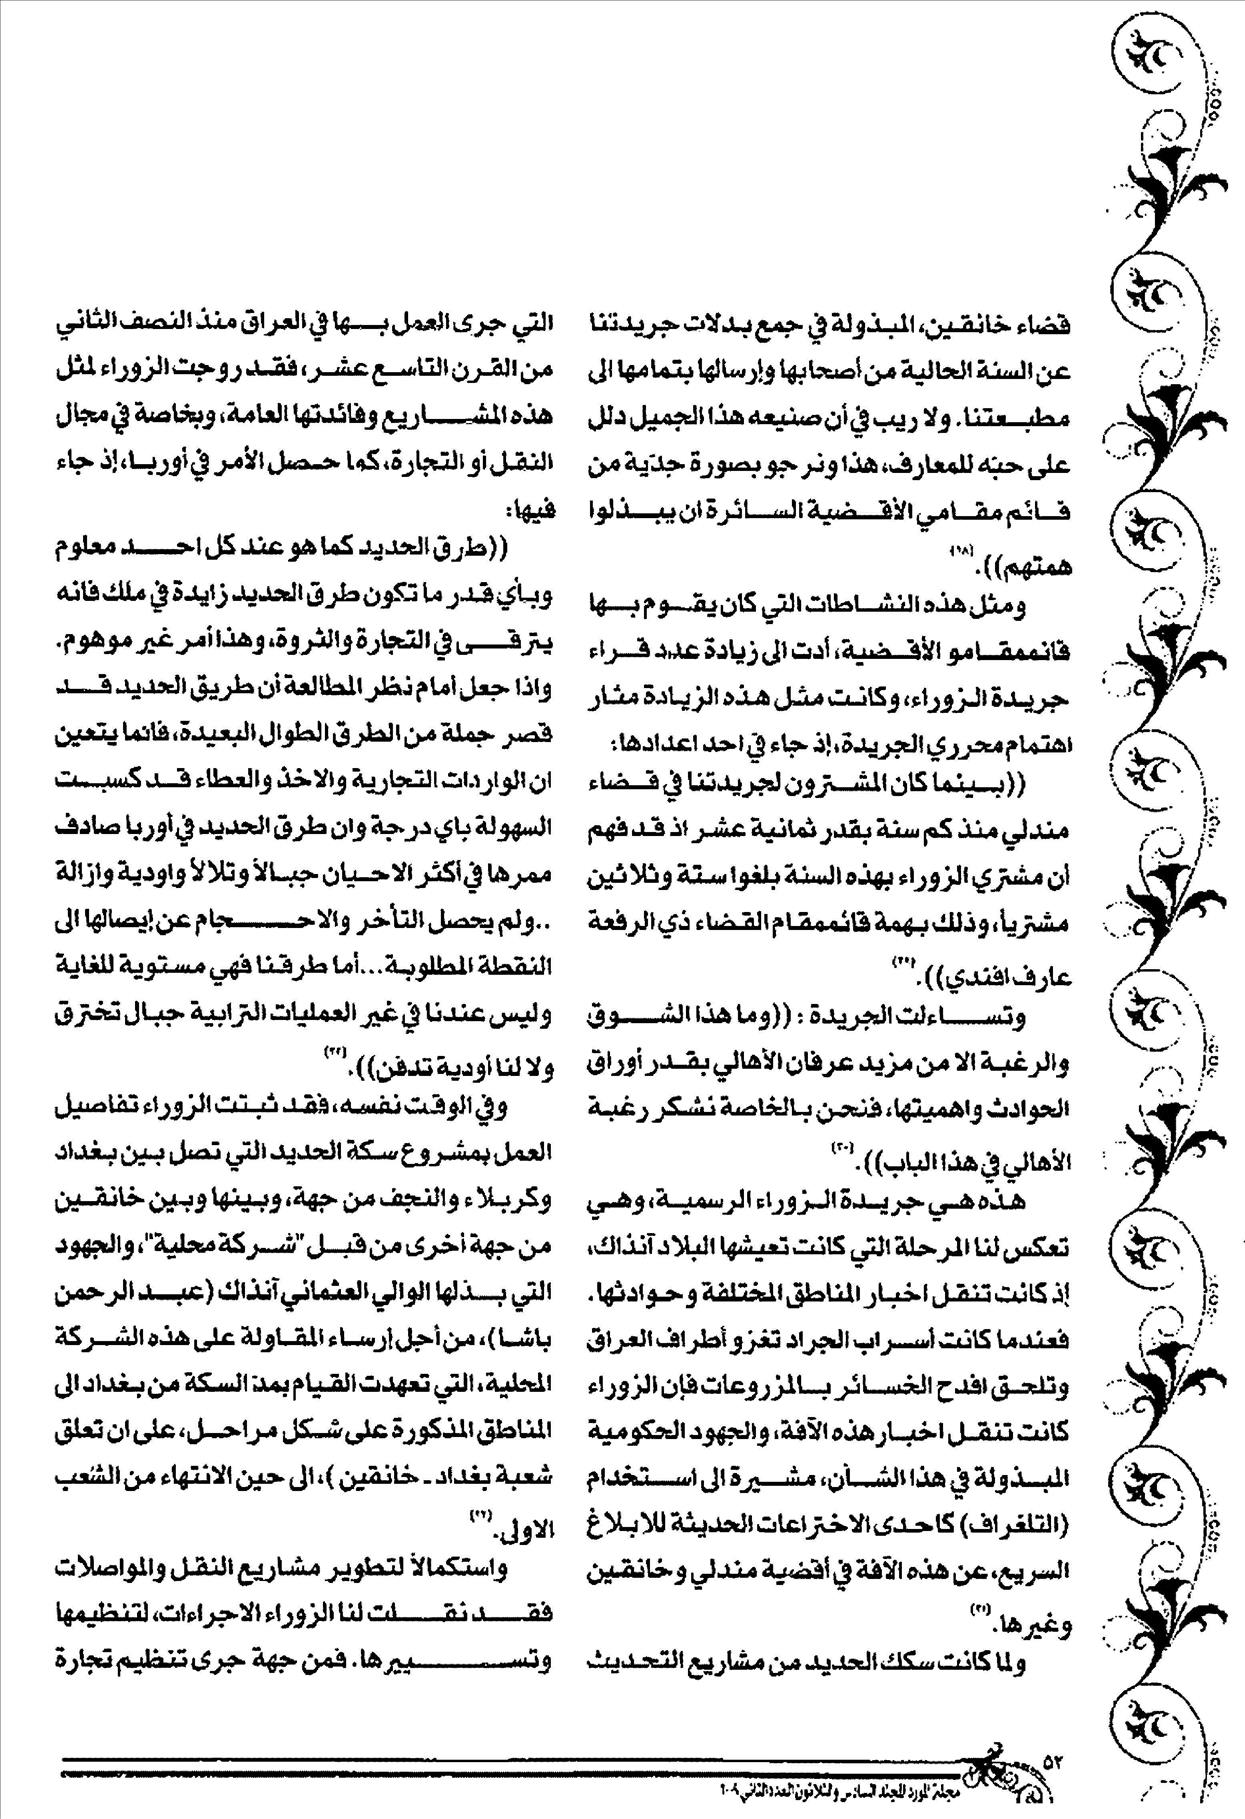 قضاء خانقين، المبذولة في جمع بدلات جريدتنا
عن السنة الحالية من أصحابها وإرسالها بتمامها الى
مطبعتنا. ولا ريب في أن صنيعه هذا الجميل دلل
على حبّه للمعارف، هذا ونرجو بصورة جدّية من
قائم مقامي الأقضية السائرة ان يبذلوا
همتهم)).(١٨)
ومثل هذه النشاطات التي كان يقوم بها
قائممقامو الأقضية، أدت الى زيادة عدد قراء
جريدة الزوراء، وكانت مثل هذه الزيادة مثار
اهتمام محرري الجريدة، إذ جاء في احد اعدادها:
((بينما كان المشترون لجريدتنا في قضاء
مندلي منذ كم سنة بقدر ثمانية عشر اذ قد فهم
أن مشتري الزوراء بهذه السنة بلغوا ستة وثلاثين
مشترياً، وذلك بهمة قائممقام القضاء ذي الرفعة
عارف افندي)).
وتساءلت الجريدة : ((وما هذا الشوق
والرغبة الا من مزيد عرفان الأهالي بقدر أوراق
الحوادث واهميتها، فنحن بالخاصة نشكر رغبة
الأهالي في هذا الباب)).(٢٠)
هذه هي جريدة الزوراء الرسمية، وهي
تعكس لنا المرحلة التي كانت تعيشها البلاد آنذاك،
إذ كانت تنقل اخبار المناطق المختلفة وحوادثها.
فعندما كانت أسراب الجراد تغزو أطراف العراق
وتلحق افدح الخسائر بالمزروعات فإن الزوراء
كانت تنقل اخبار هذه الآفة، والجهود الحكومية
المبذولة في هذا الشأن، مشيرة الى استخدام
(التلغراف) كاحدى الاختراعات الحديثة للابلاغ
السريع، عن هذه الآفة في أقضية مندلي وخانقين
وغيرها.(٢١)
ولما كانت سكك الحديد من مشاريع التحديث
التي جرى العمل بها في العراق منذ النصف الثاني
من القرن التاسع عشر، فقد روجت الزوراء لمثل
هذه المشاريع وفائدتها العامة، وبخاصة في مجال
النقل أو التجارة، كما حصل الأمر في أوربا، إذ جاء
فيها:
((طرق الحديد كما هو عند كل احد معلوم
وبأي قدر ما تكون طرق الحديد زايدة في ملك فانه
يترقى في التجارة والثروة، وهذا أمر غير موهوم.
واذا جعل أمام نظر المطالعة أن طريق الحديد قد
قصر جملة من الطرق الطوال البعيدة، فانما يتعين
ان الواردات التجارية والاخذ والعطاء قد كسبت
السهولة باي درجة وان طرق الحديد في أوربا صادف
ممرها في أكثر الاحيان جبالاً وتلالاً واودية وازالة
..ولم يحصل التأخر والاحجام عن إيصالها الى
النقطة المطلوبة...أما طرقنا فهي مستوية للغاية
وليس عندنا في غير العمليات الترابية جبال تخترق
ولا لنا أودية تدفن)).
وفي الوقت نفسه، فقد ثبتت الزوراء تفاصيل
العمل بمشروع سكة الحديد التي تصل بين بغداد
وكربلاء والنجف من جهة، وبينها وبين خانقين
من جهة أخرى من قبل "شركة محلية"، والجهود
التي بذلها الوالي العثماني آنذاك (عبد الرحمن
باشا)، من أجل إرساء المقاولة على هذه الشركة
المحلية، التي تعهدت القيام بمدّ السكة من بغداد الى
المناطق المذكورة على شكل مراحل، على ان تعلق
شعبة بغداد ـ خانقين )، الى حين الانتهاء من الشعب
الاولى.
واستكمالاً لتطوير مشاريع النقل والمواصلات
فقد نقلت لنا الزوراء الاجراءات، لتنظيمها
وتسييرها. فمن جهة جرى تنظيم تجارة
٥٢
مجلة المورد المجلد السادس والثلاثون العدد الثاني